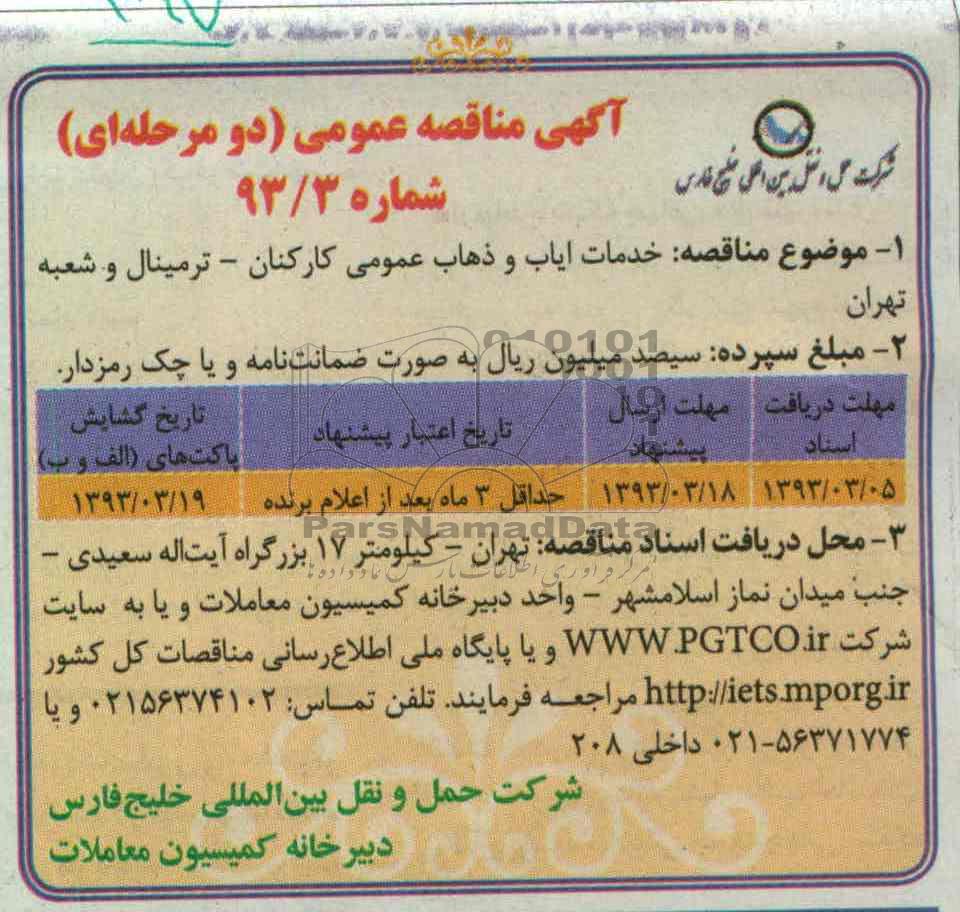 شرکت حمل و نقل بین المللی خلیج فارس
آگهی مناقصه عمومی (دو مرحله‌ای)
شماره ۹۳/۳
۱- موضوع مناقصه: خدمات ایاب و ذهاب عمومی کارکنان – ترمینال و شعبه
تهران
۲- مبلغ سپرده: سیصد میلیون ریال به صورت ضمانت‌نامه و یا چک رمزدار.
مهلت دریافت اسناد
مهلت ارسال پیشنهاد
تاریخ اعتبار پیشنهاد
تاریخ گشایش پاکت‌های (الف و ب)
۱۳۹۳/۰۳/۰۵
۱۳۹۳/۰۳/۱۸
حداقل ۳ ماه بعد از اعلام برنده
۱۳۹۳/۰۳/۱۹
ParsNamadData
۳- محل دریافت اسناد مناقصه: تهران – کیلومتر ۱۷ بزرگراه آیت‌اله سعیدی –
جنب میدان نماز اسلامشهر – واحد دبیرخانه کمیسیون معاملات و یا به سایت
شرکت WWW.PGTCO.ir و یا پایگاه ملی اطلاع‌رسانی مناقصات کل کشور
http://iets.mporg.ir مراجعه فرمایند. تلفن تماس: ۰۲۱۵۶۳۷۴۱۰۲ و یا
۰۲۱-۵۶۳۷۱۷۷۴ داخلی ۲۰۸
شرکت حمل و نقل بین‌المللی خلیج‌فارس
دبیرخانه کمیسیون معاملات